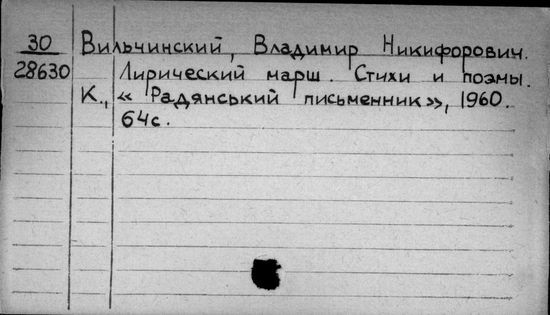 30 Вильчинский, Владимир Никифорович.
28630 Лирический марш. Стихи и поэмы.
К., « Радянський письменник», 1960.
64с.